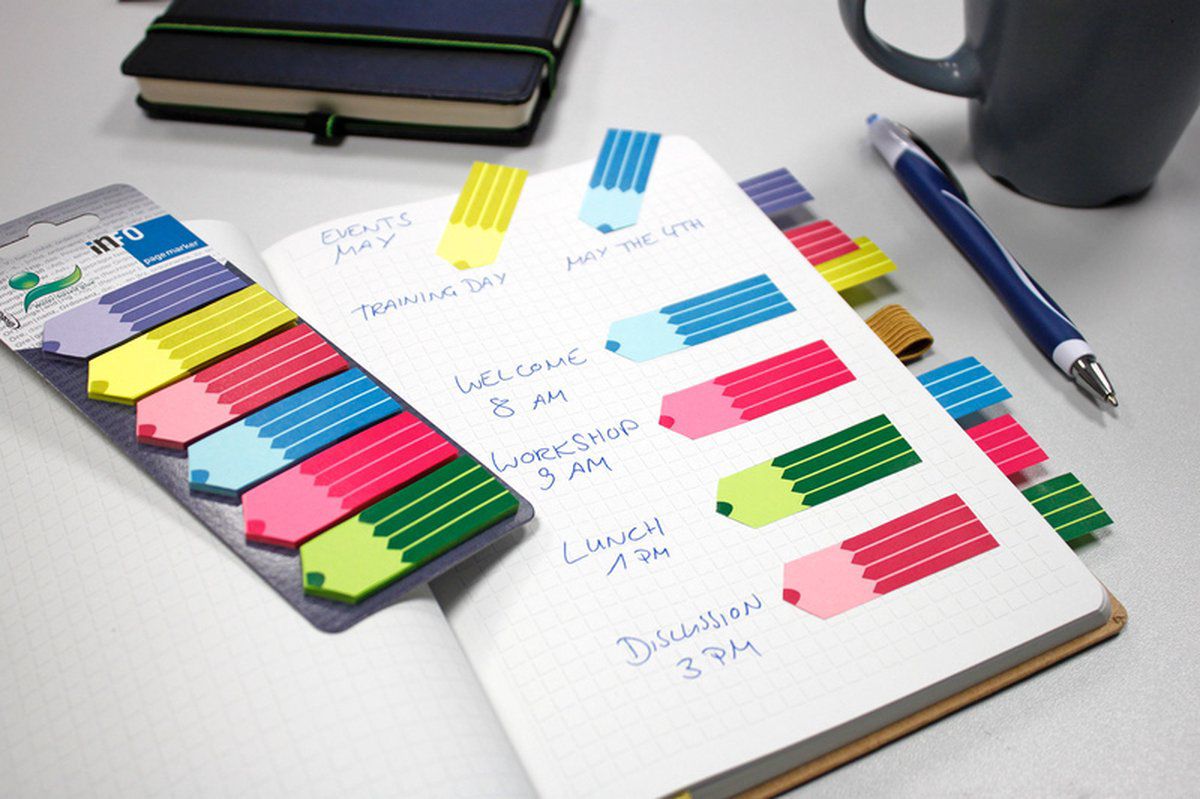 info
page marker
EVENTS
MAY
TRAINING DAY
MAY THE 4TH
WELCOME
8 AM
WORKSHOP
9 AM
LUNCH
1 PM
DISCUSSION
3 PM